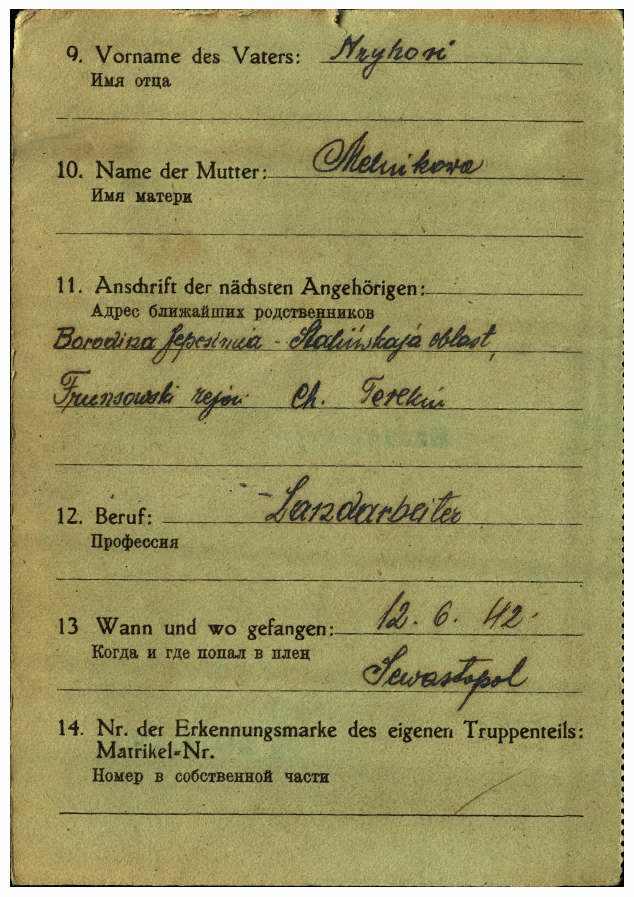 9. Vorname des Vaters: Hryhori
Имя отца
10. Name der Mutter: Melnikowa
Имя матери
11. Anschrift der nächsten Angehörigen:
Адрес ближайших родственников
Borodina - Stalinskaja oblast,
Frunsowski rejon Ch.
12. Beruf: Landarbeiter
Профессия
13 Wann und wo gefangen: 12. 6. 42.
Когда и где попал в плен
Sewastopol
14. Nr. der Erkennungsmarke des eigenen Truppenteils:
Matrikel-Nr.
Номер в собственной части